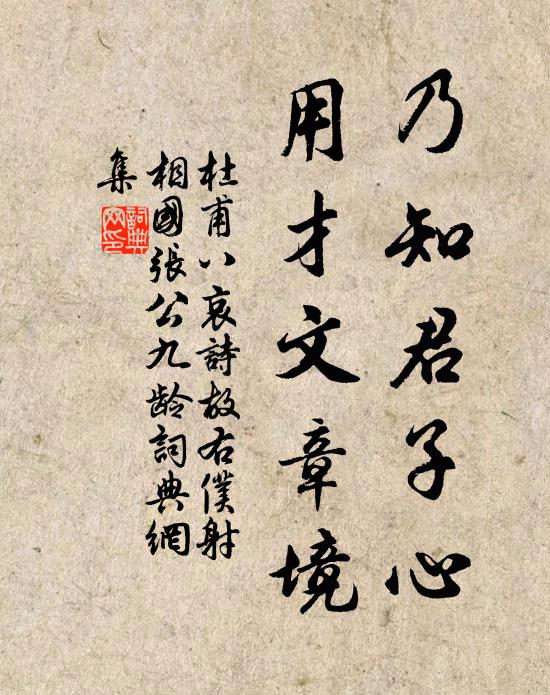 乃知君子心
用才文章境
杜甫八哀詩故右僕射
相國張公九齡詞典網
集
詞典
网印